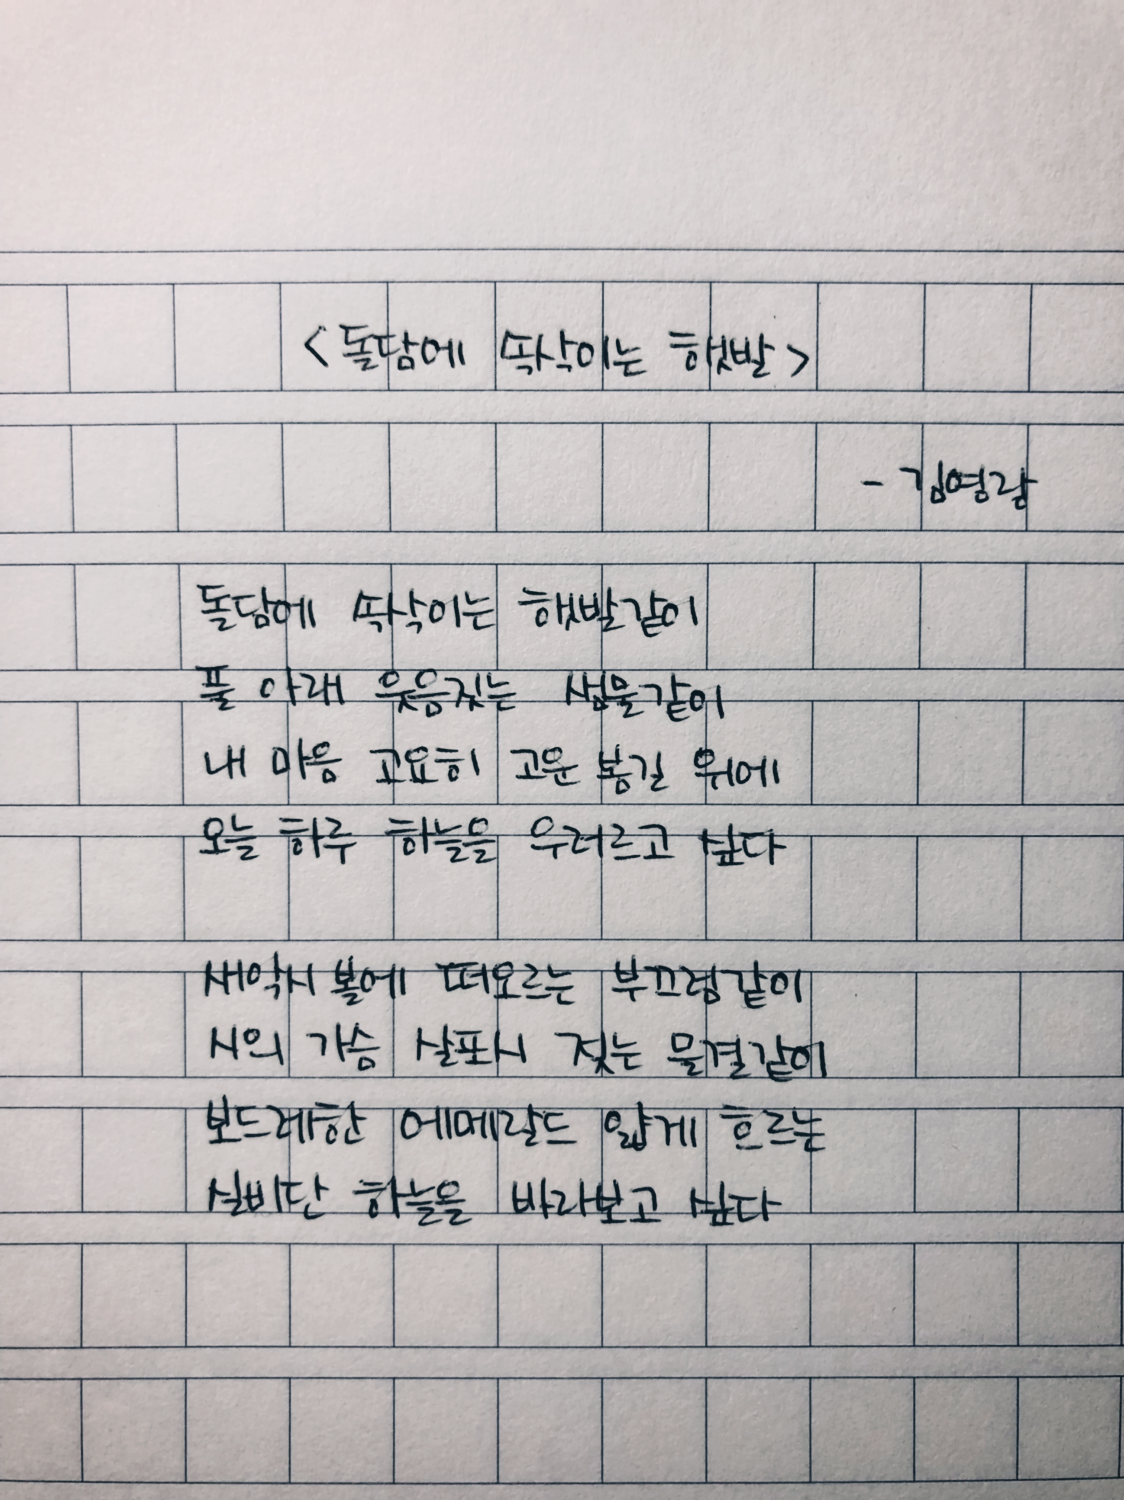 <돌담에 속삭이는 햇발>
- 김영랑
돌담에 속삭이는 햇발같이
풀 아래 웃음짓는 샘물같이
내 마음 고요히 고운 봄길 위에
오늘 하루 하늘을 우러르고 싶다
새악시 볼에 떠오르는 부끄럼같이
시의 가슴 살포시 젖는 물결같이
보드레한 에메랄드 얇게 흐르는
실비단 하늘을 바라보고 싶다